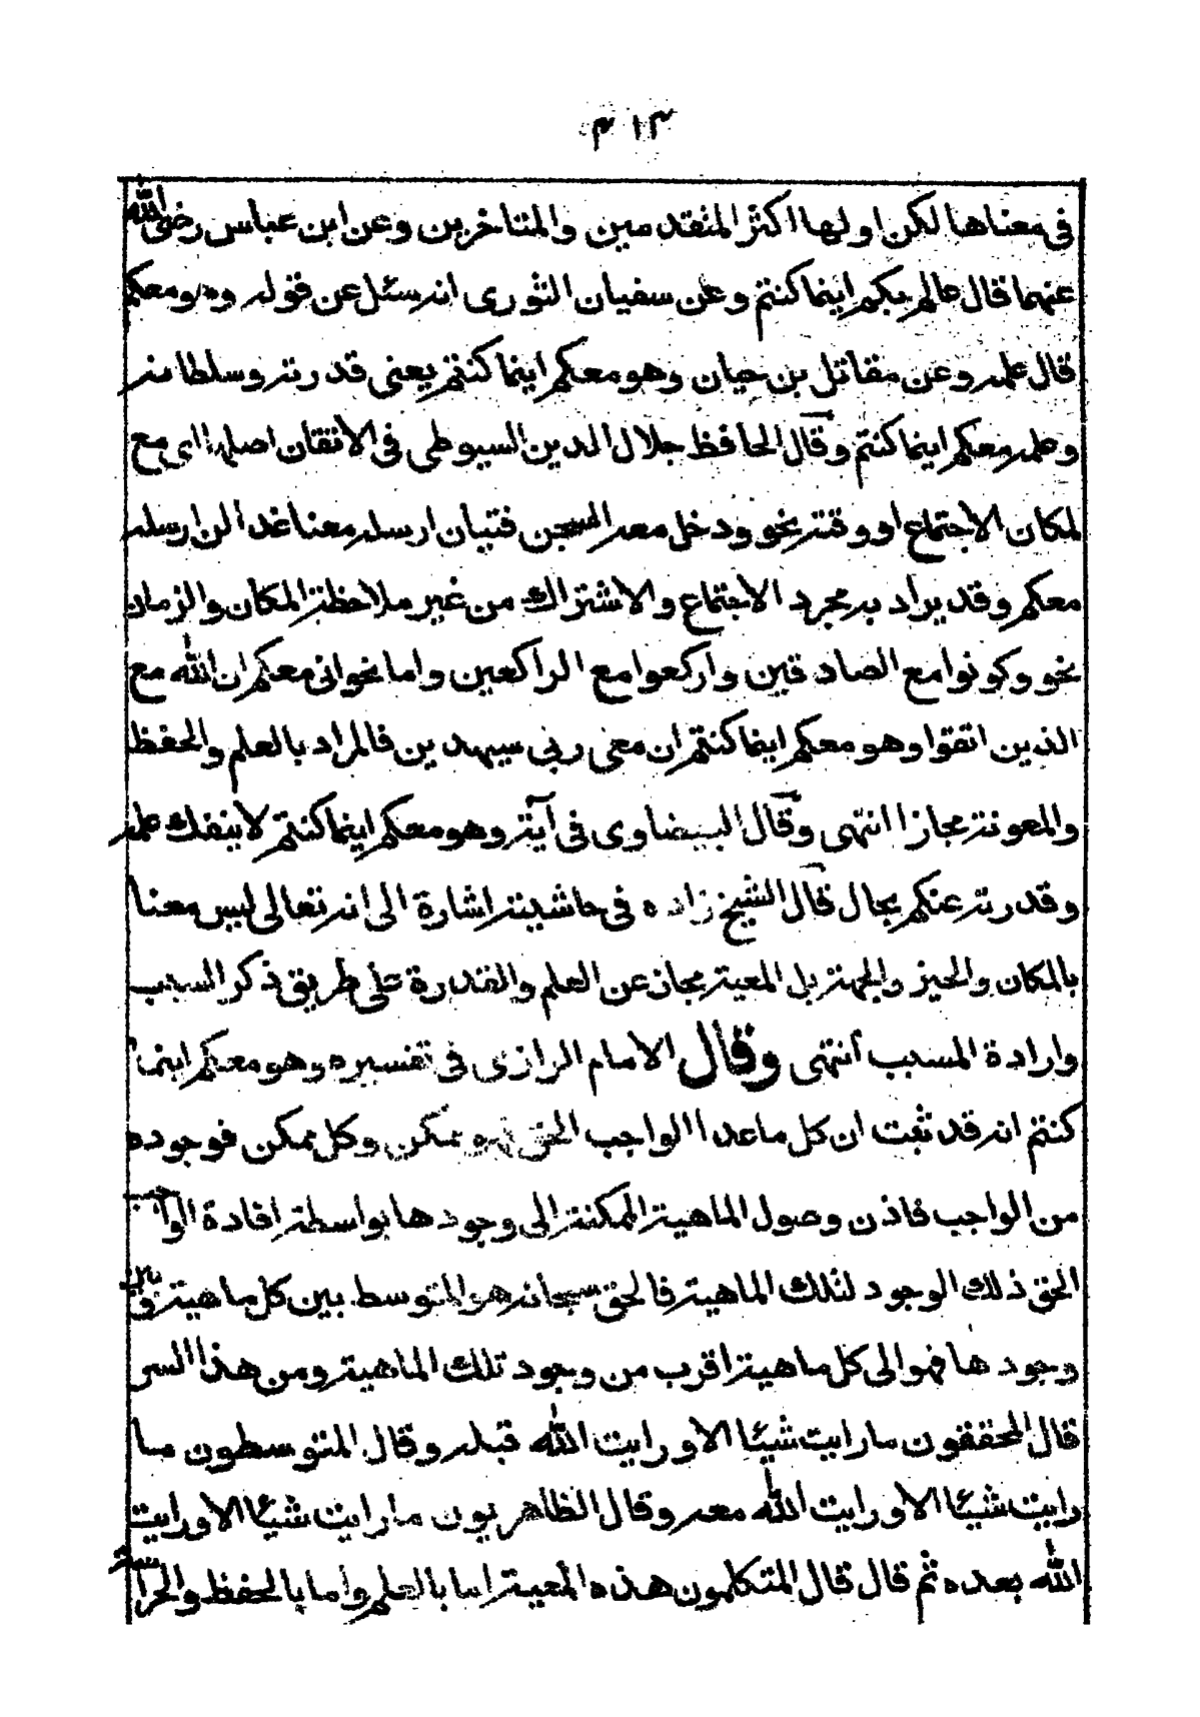 ٣١٣
فى معناها لكن اولها اكثر المتقدمين والمتاخرين وعن ابن عباس رضى الله
عنهما قال عالم بكم اينما كنتم وعن سفيان الثورى انه سئل عن قوله وهو معكم
قال علمه وعن مقاتل بن حيان وهو معكم اينما كنتم يعنى قدرته وسلطانه
وعلمه معكم اينما كنتم وقال الحافظ جلال الدين السيوطى فى الاتقان اصلها اى مع
لمكان الاجتماع او وقته نحو ودخل معه السجن فتيان ارسله معنا غدا لن ارسله
معكم وقد يراد به مجرد الاجتماع والاشتراك من غير ملاحظة المكان والزمان
نحو وكونوا مع الصادقين واركعوا مع الراكعين واما نحو انى معكم ان الله مع
الذين اتقوا وهو معكم اينما كنتم ان معى ربى سيهدين فالمراد بالعلم والحفظ
والمعونة مجازا انتهى وقال البيضاوى فى آية وهو معكم اينما كنتم لا ينفك علمه
وقدرته عنكم بحال قال الشيخ زاده فى حاشيته اشارة الى انه تعالى ليس معنا
بالمكان والحيز والجهة بل المعية مجاز عن العلم والقدرة على طريق ذكر السبب
وارادة المسبب انتهى وقال الامام الرازى فى تفسيره وهو معكم اينما
كنتم انه قد ثبت ان كل ما عدا الواجب الحق فهو ممكن وكل ممكن فوجوده
من الواجب فاذن وصول الماهية الممكنة الى وجودها بواسطة افادة الواجب
الحق ذلك الوجود لتلك الماهية فالحق سبحانه هو المتوسط بين كل ماهية وبين
وجودها فهو الى كل ماهية اقرب من وجود تلك الماهية ومن هذا السر
قال المحققون ما رايت شيئا الا ورايت الله قبله وقال المتوسطون ما
رايت شيئا الا ورايت الله معه وقال الظاهريون ما رايت شيئا الا ورايت
الله بعده ثم قال قال المتكلمون هذه المعية اما بالعلم واما بالحفظ والحراسة